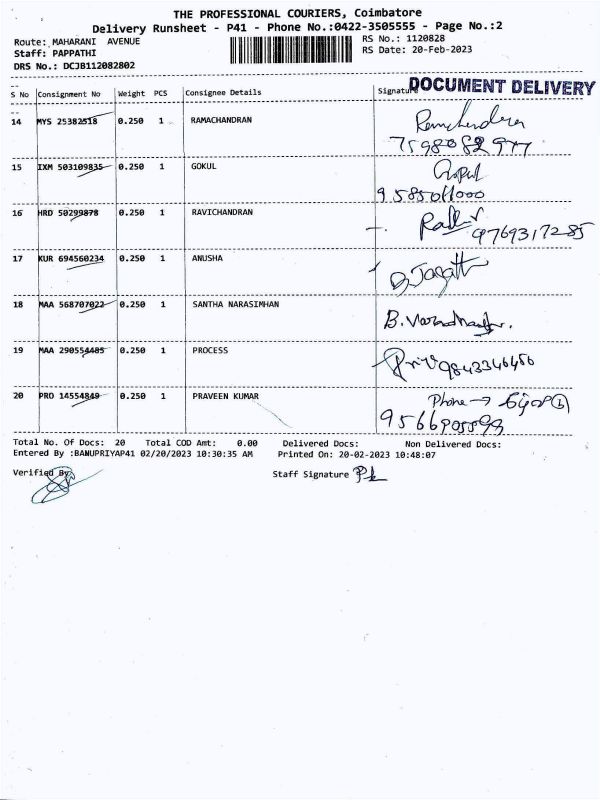 THE PROFESSIONAL COURIERS, Coimbatore
Delivery Runsheet - P41 - Phone No.:0422-3505555 - Page No.:2
Route: MAHARANI AVENUE RS No.: 1120828
Staff: PAPPATHI RS Date: 20-Feb-2023
DRS No.: DCJB112082802
DOCUMENT DELIVERY
S No Consignment No Weight PCS Consignee Details Signature
14 MYS 25382518 0.250 1 RAMACHANDRAN Ramchandran
7598082977
15 IXM 503109835 0.250 1 GOKUL Gopal
9585011000
16 HRD 50299878 0.250 1 RAVICHANDRAN
9769317285
17 KUR 694560234 0.250 1 ANUSHA
18 MAA 568707022 0.250 1 SANTHA NARASIMHAN
19 MAA 290554485 0.250 1 PROCESS 9843346456
20 PRO 14554849 0.250 1 PRAVEEN KUMAR Phone →
9566905599
Total No. Of Docs: 20 Total COD Amt: 0.00 Delivered Docs: Non Delivered Docs:
Entered By :BANUPRIYAP41 02/20/2023 10:30:35 AM Printed On: 20-02-2023 10:48:07
Verified By Staff Signature